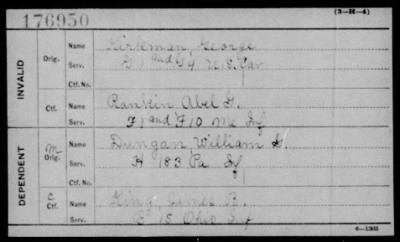 176950
(3-H-4)
INVALID
Orig.
Name Kirkman, George
Serv. G 1 and G 4 U.S. Cav
Ctf. No.
Ctf.
Name Rankin Abel G.
Serv. F 1 and F 10 Me Inf
DEPENDENT
M
Orig.
Name Dungan, William G.
Serv. H 183 Pa Inf
Ctf. No.
C
Ctf.
Name King, James B.
Serv. 15 Ohio Inf